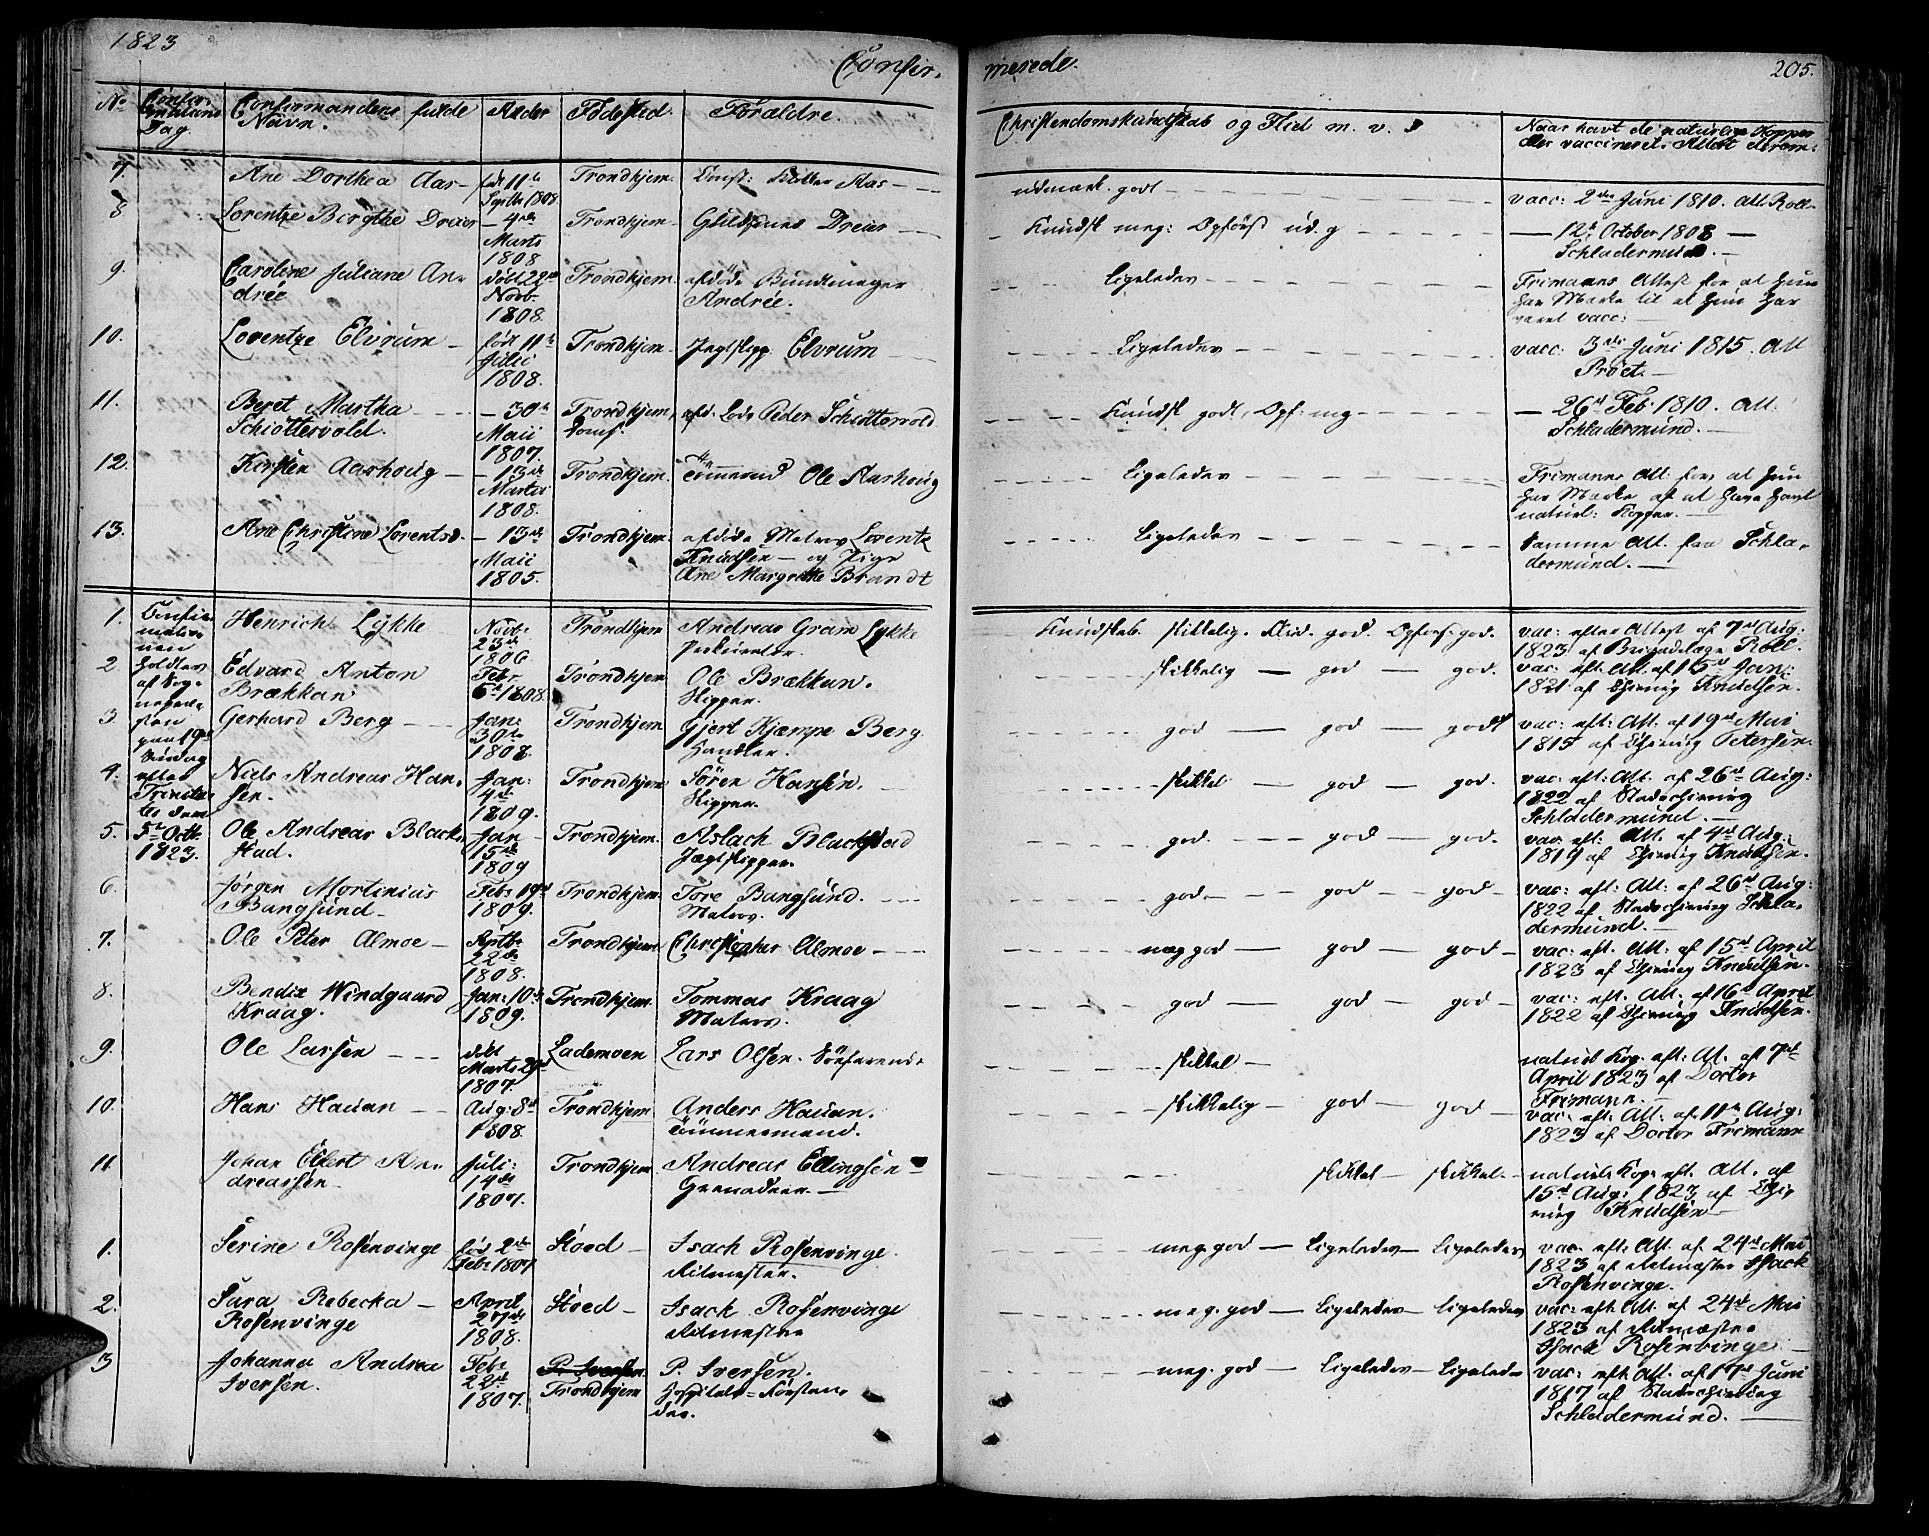 1823
Confir-
merede.
205.
No
Confir-
mations
Dag.
Confirmandens fulde
Navn.
Alder
Fødested.
Forældre.
Christendomskundskab og Flid m. v.
Naar havt de naturlige Kopper
eller vaccineret. Attest derom.
7. Ane Dorthea Aas født 11te
Septbr 1808 Trondhjem Aas
udmærk. godt vacc: 2den Juni 1810. Att. Roll.
8 Lorentze Birgithe Dreier 4de
Marts
1808 Trondhjem Dreier
Kundsk meg: Opførsl ud. g 12te October 1808
Schladermund.
9. Caroline Juliane An-
drée døbt 22de
Novb.
1808 Trondhjem afdøde Bundtmager
Andrée.
Ligeledes Frimanns Attest for at hun
har Mærke til at hun har
været vacc:
10. Lorentze Elvrum født 11te
Julii
1808. Trondhjem Jagtskipp. Elvrum
Ligeledes vacc: 3die Juni 1815. Att
Pröet.
11. Beret Martha
Schiöttervold. 30te
Maii
1807. Trondhjem, afd. Peder Schiøttervold
Kundsk godt, Opf: mg 26de Feb. 1810. Att.
Schladermund.
12. Kirsten Aarhoug 13de
Martii
1808. Trondhjem Tömmermd Ole Aarhoug
Ligeledes Frimanns Att. for at hun
har Mærke af at have havt
naturl: Kopper.
13. Ane Christine Lorentsd. 13de
Maii
1805. Trondhjem afdöde Matros Lorentz
Knudsen og Pige
Ane Margrethe Brandt
Ligeledes Samme Att. fra Schla-
dermund.
Confir-
matio-
nen
holdtes
af Sog-
nepræ-
sten
paa 19de
Søndag
efter
Trinita-
tis den
5te Octb
1823.
1. Henrich Lykke Novb.
23de
1806 Trondhjem Andreas Gram Lykke
Kundskab. skikkelig. Flid. god. Opførs. god. vac: efter Attest af 7de Aug:
1823 af Brigadelæge Roll.
2 Edvard Anton
Brækkan Febr
6te 1808. Trondhjem Ole Brækkan.
Skipper.
skikkelig god god. vac: eft. Att. af 15de Jan:
1821 af Chirurg Knudsen.
3. Gerhard Berg Jan:
30te
1808 Trondhjem Gjert Kjæmpe Berg
Handler.
god god godt vac: eft: Att. af 19de Mai
1815 af Chirurg Petersen.
4. Niels Andreas Han-
sen. Jan:
4de
1809. Trondhjem Sören Hansen.
Skipper.
skikkel god god. vac: eft: Att. af 26de Aug:
1822 af Stadschirurg
Schladermund.
5. Ole Andreas Black-
stad. Jan
15de
1809 Trondhjem. Aslach Blackstad
Jagtskipper.
god. god god vac: eft: Att. af 4de Aug:
1819 af Chirurg Knudsen.
6. Jørgen Mortinius
Bangsund Febr 19de
1809. Trondhjem. Tore Bangsund.
Matros.
god. god god vac: eft: Att: af 26de Aug:
1822 af Stadschirurg Schla-
dermund.
7. Ole Peter Almoe Septbr
22de
1808. Trondhjem Christopher Almoe
meg god god god vac: eft. Att: af 15de April
1823 af Chirurg Knudsen.
8. Bendix Windgaard
Kraag. Jan: 10de
1809. Trondhjem. Tommas Kraag
Matros.
god god god vac: eft. Att. af 16de April
1822 af Chirurg Knudsen.
9. Ole Larsen døbt
Marts 29de
1807. Lademoen Lars Olsen. Söefarende
skikkel naturl Kop. eft: At. af 7de
April 1823 af Doctor
Frimann.
10. Hans Hauan Aug: 8de
1808. Trondhjem Anders Hauan.
Tömmermand.
skikkelig god god vac: eft: Att: af 11te Aug:
1823 af Doctor Frimann
11 Johan Ellert An-
dreassen Juli:
14de
1807. Trondhjem Andreas Ellingsen
Grenadeer.
skikkel skikkel. naturl. Kop. eft. Att. af
15de Aug: 1823 af Chi-
rurg Knudsen
1. Serine Rosenvinge fød 2den
Febr 1807 Stoed Isach Rosenvinge.
Ritmester.
meg. god Ligeledes Ligeledes vac. eft. Att. af 24de Mai
1823 af Ritmester Isack
Rosenvinge.
2. Sara Rebecka
Rosenvinge April
27de
1808. Stoed Isack Rosenvinge
Ritmester
meg. god Ligeledes Ligeledes vac: eft. Att. af 24de Mai
1823 af Ritmester
Isack Rosenvinge
3 Johanna Andrea
Iversen. Febr
22de
1807. P. Iversen
Trondhjem P. Iversen.
Hospitals-Forstan-
der.
meg. god Ligeledes Ligeledes vac: eft Att. af 17de Juni
1817 af Stadschirurg
Schladermund.